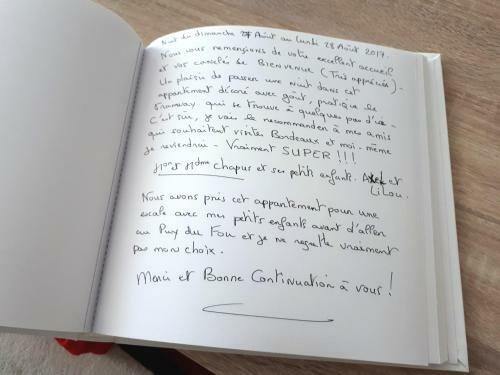 Nuit du dimanche 27 Août au lundi 28 Août 2017.
Nous vous remercions de votre excellent accueil
et vos cancelés de BIENVENUE (Très appréciés) -
Un plaisir de passer une nuit dans cet
appartement décoré avec goût, pratique le
Tramway qui se trouve à quelques pas d'ici -
C'est sûr, je vais le recommander à mes amis
qui souhaitent visiter Bordeaux et moi-même
je reviendrai - Vraiment SUPER !!!
Mr et Mme Chapus et ses petits enfants. Axel et
LiLou.
Nous avons pris cet appartement pour une
escale avec mes petits enfants avant d'aller
au Puy du Fou et je ne regrette vraiment
pas mon choix.
Merci et Bonne Continuation à vous !